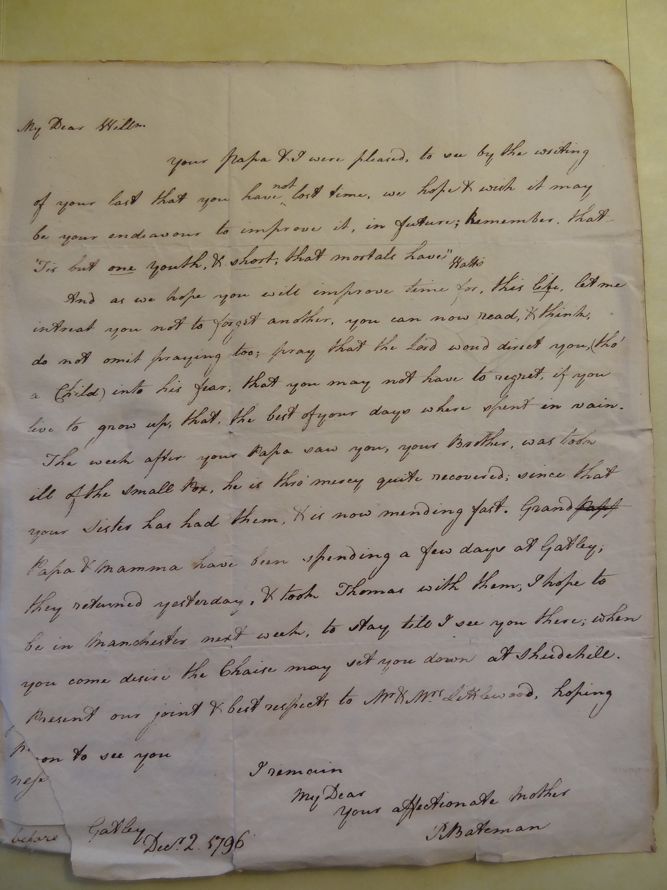 My Dear Willm.
your Papa & I were pleased, to see by the writing
of your last that you have not lost time, we hope & wish it may
be your endeavour to improve it, in future; Remember, that
'Tis but one youth, & short, that mortals have" Watts
And as we hope you will improve time for, this life, let me
intreat you not to forget another, you can now read, & think,
do not omit praying too; pray that the Lord woud direct you, (tho'
a Child) into his fear, that you may not have to regret, if you
live to grow up, that, the best of your days where spent in vain.
The week after your Papa saw you, your Brother, was took
ill of the small Pox, he is thro' mercy quite recovered; since that
your Sister has had them, & is now mending fast. Grand Papa
Papa & Mamma have been spending a few days at Gatley;
they returned yesterday, & took Thomas with them, I hope to
be in Manchester next week, to stay till I see you there; when
you come desire the Chaise may set you down at Shudehill.
Present our joint & best respects to Mr. & Mrs. Littlewood, hoping
soon to see you
I remain
My Dear
your affectionate Mother
Gatley
Decr. 2. 1796
before
Bateman